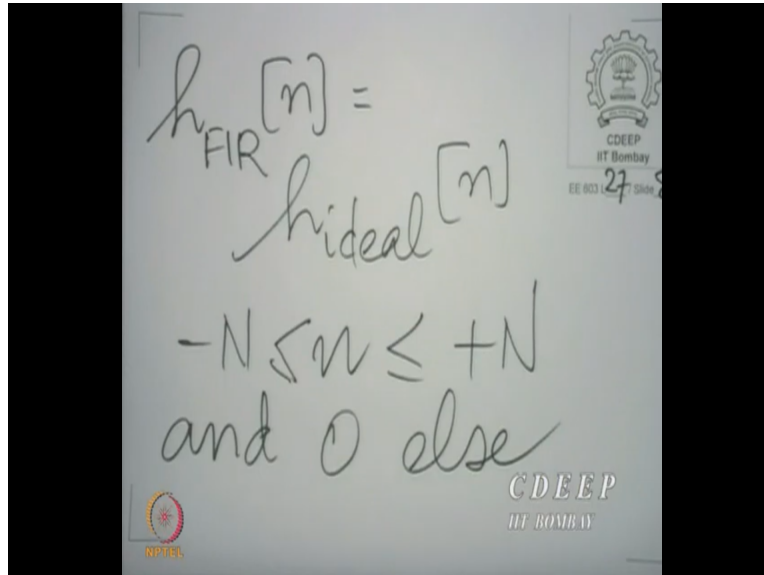 h_FIR[n] =
h_ideal[n]
-N ≤ n ≤ +N
and 0 else
CDEEP
IIT Bombay
EE 603 L 27 / Slide
CDEEP
IIT BOMBAY
NPTEL